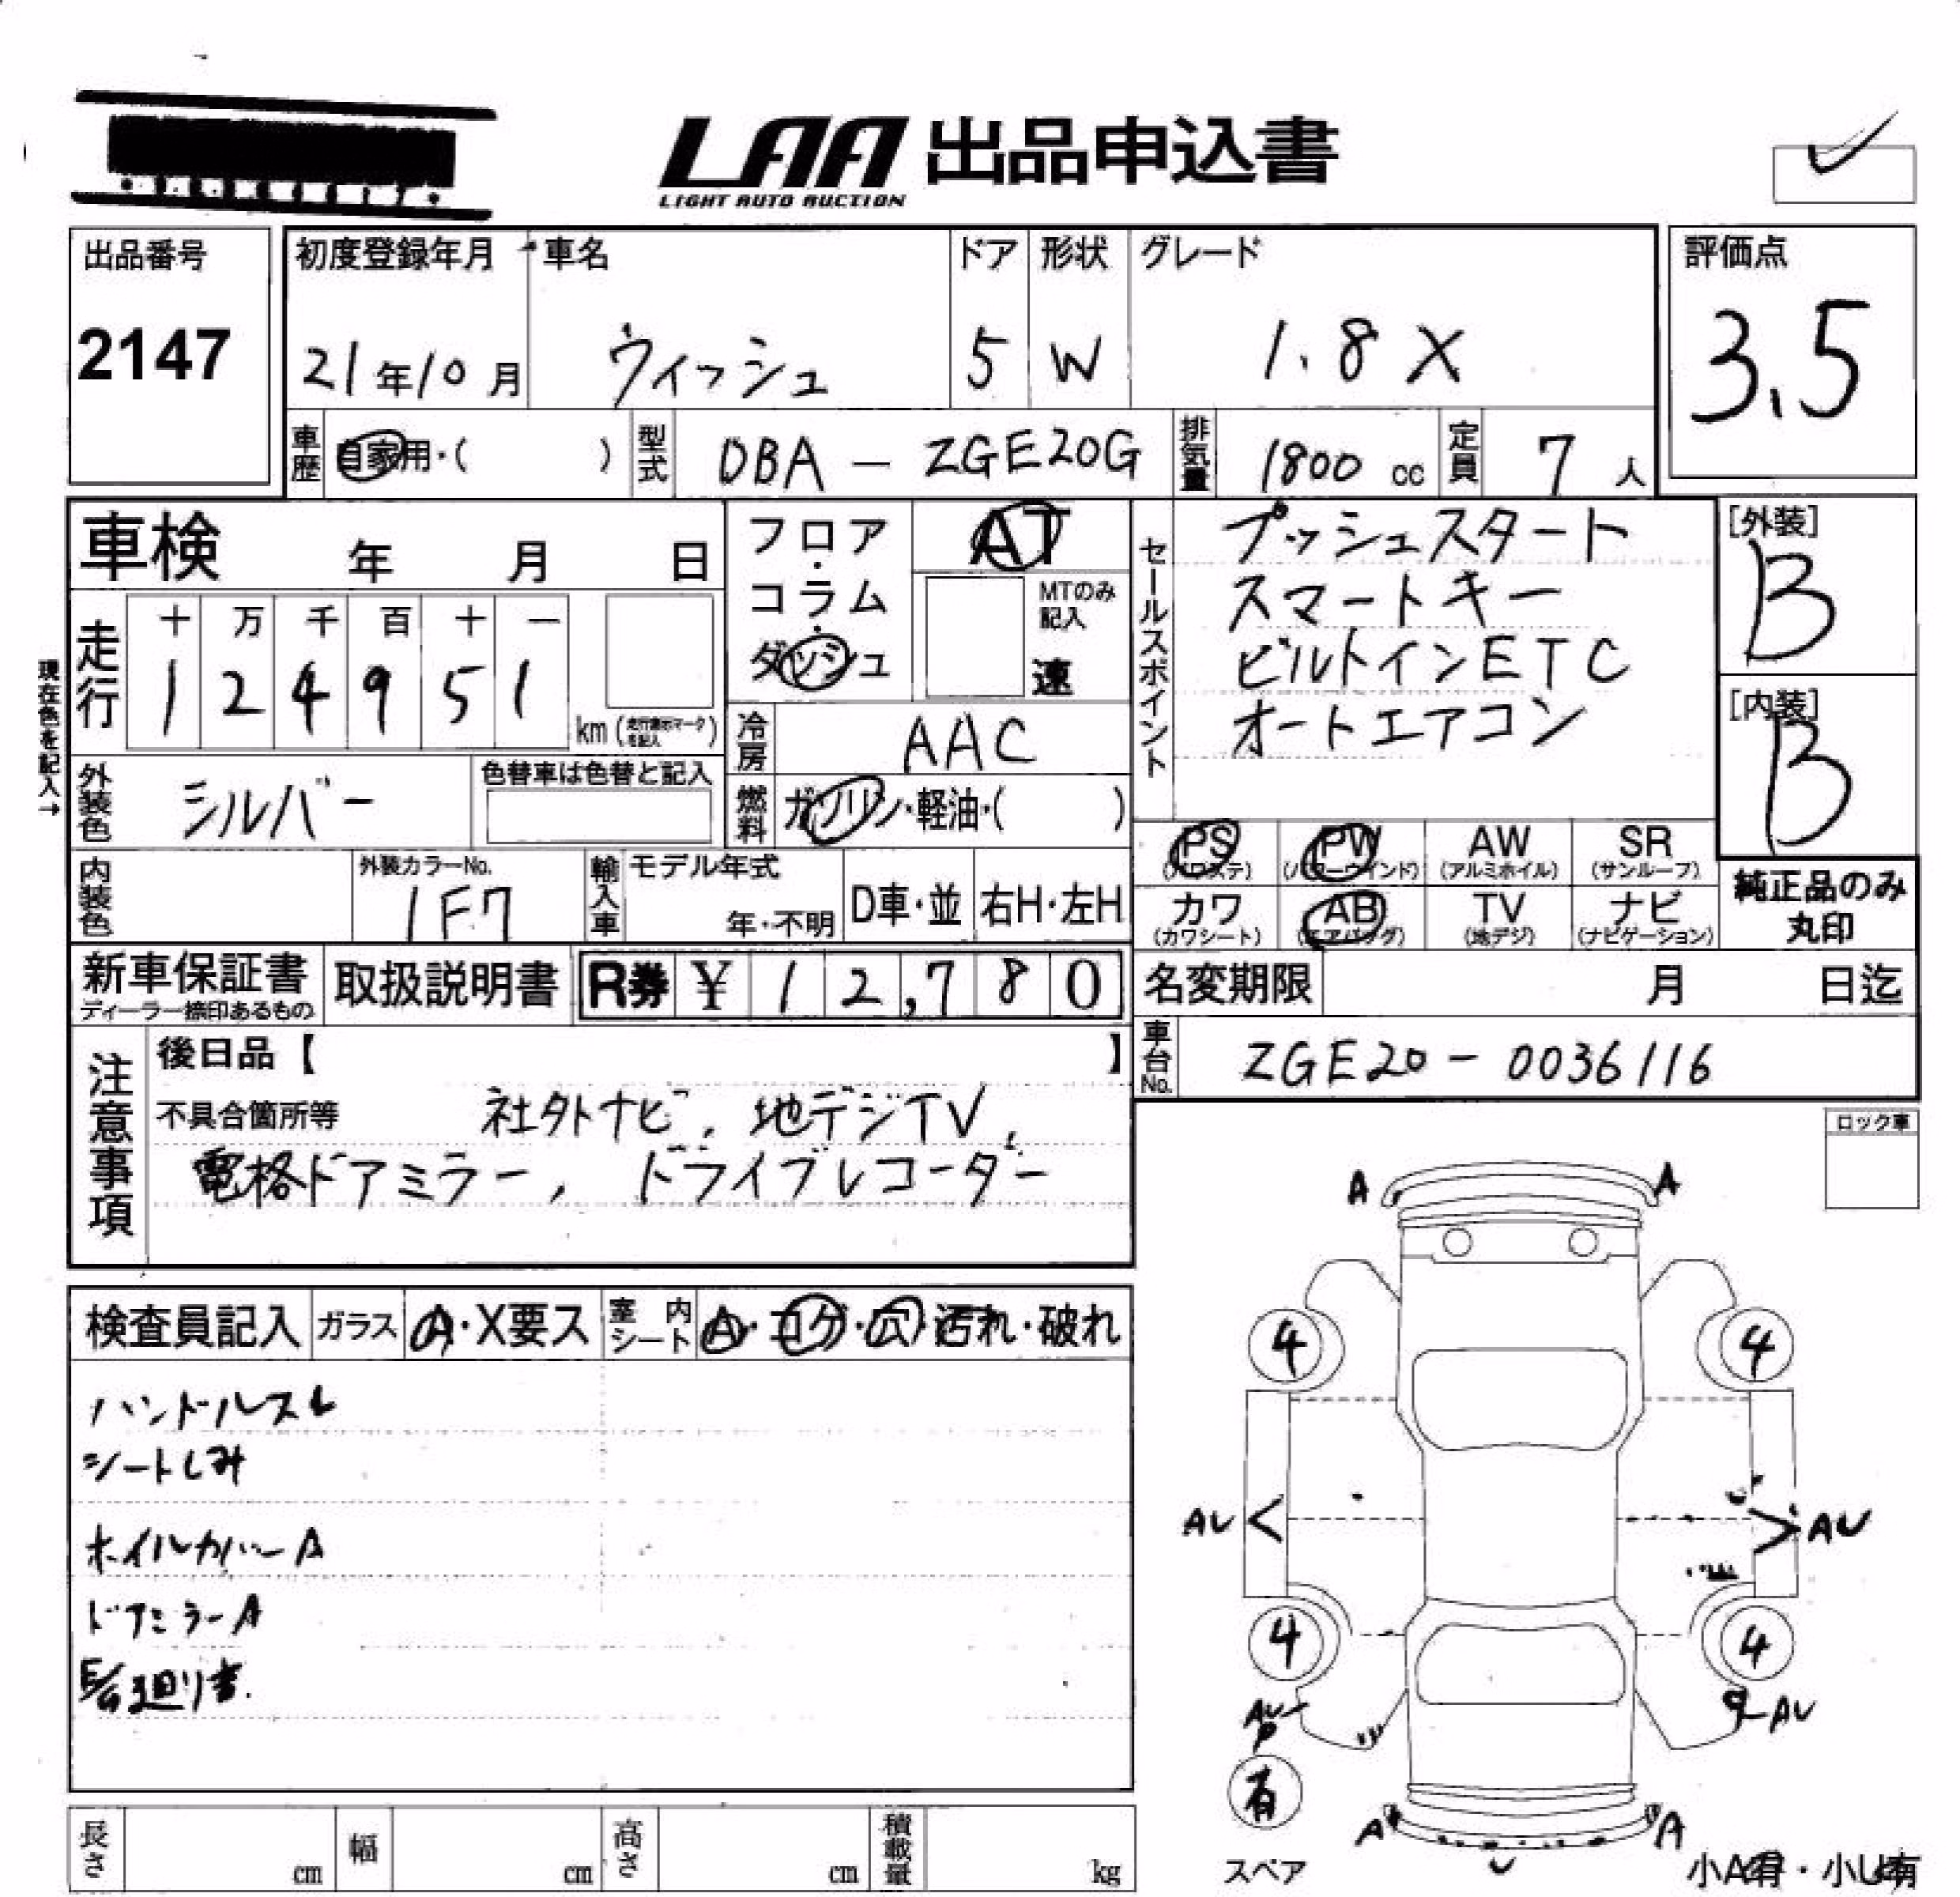 LAA 出品申込書
LIGHT AUTO AUCTION
出品番号
2147
初度登録年月
21年10月
車名
ウィッシュ
ドア
5
形状
W
グレード
1.8X
評価点
3.5
車歴
自家用・( )
型式
DBA - ZGE20G
排気量
1800 cc
定員
7人
車検 年 月 日
走行
十 万 千 百 十 一
1 2 4 9 5 1
km(走行表示マークを記入)
現在色を記入→
フロア・コラム・ダッシュ
AT
MTのみ記入
速
冷房
AAC
燃料
ガソリン・軽油・( )
セールスポイント
プッシュスタート
スマートキー
ビルトインETC
オートエアコン
[外装]
B
[内装]
B
外装色
シルバー
色替車は色替と記入
内装色
外装カラーNo.
1F7
輸入車
モデル年式
年・不明
D車・並
右H・左H
PS (パワステ)
PW (パワーウインド)
AW (アルミホイル)
SR (サンルーフ)
カワ (カワシート)
AB (エアバッグ)
TV (地デジ)
ナビ (ナビゲーション)
純正品のみ
丸印
新車保証書
ディーラー捺印あるもの
取扱説明書
R券 ¥ 12,780
名変期限 月 日迄
車台No.
ZGE20-0036116
注意事項
後日品【 】
不具合箇所等 社外ナビ、地デジTV、
電格ドアミラー、ドライブレコーダー
ロック車
検査員記入
ガラス
A・X要ス
室内シート
A・コゲ・穴・汚れ・破れ
ハンドルスレ
シートしみ
ホイルカバーA
ドアミラーA
A A
4 4
AU AU
4 4
AU
P
AU
有
スペア
A A
U
小A有・小U有
長さ cm
幅 cm
高さ cm
積載量 kg